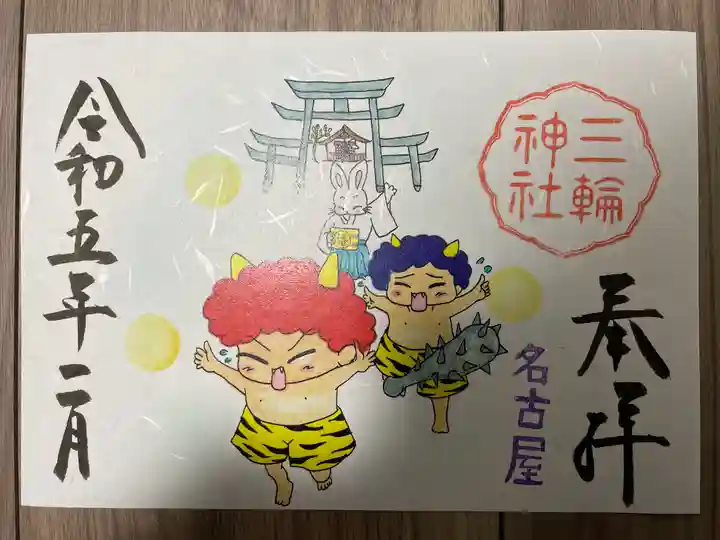 奉拝
三輪
神社
名古屋
令和五年二月